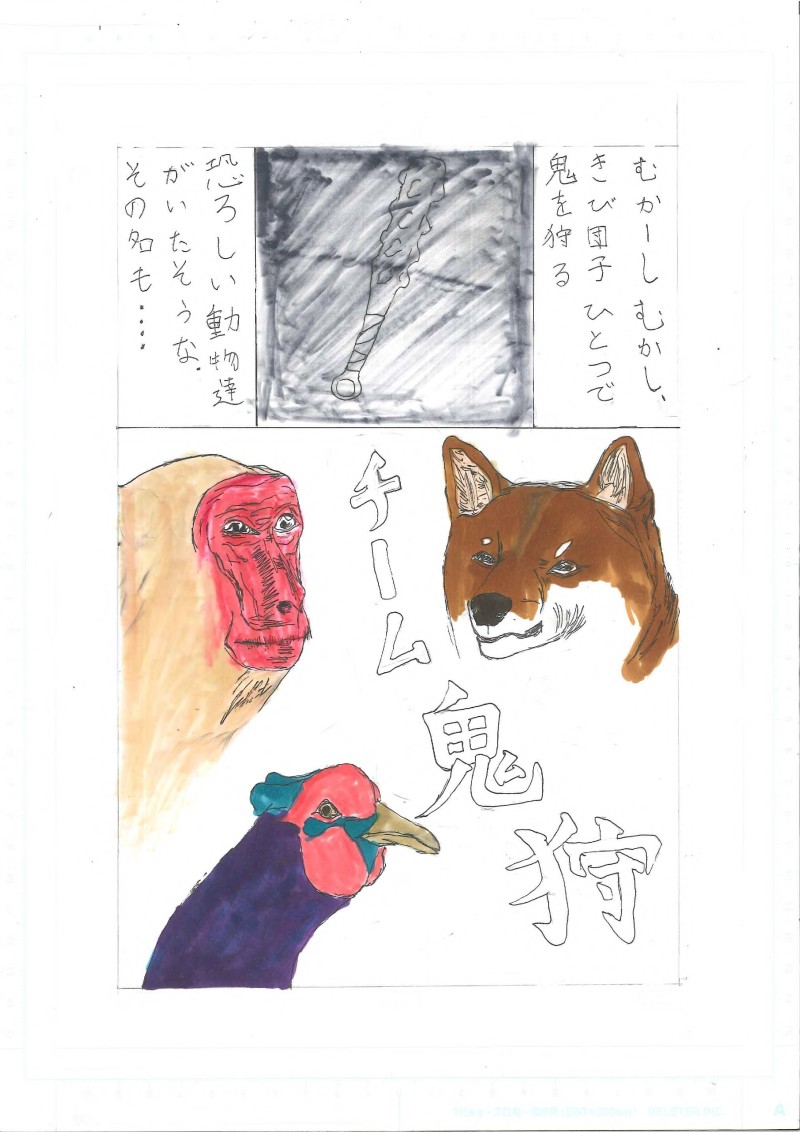 むかーしむかし、
きび団子ひとつで
鬼を狩る
恐ろしい動物達
がいたそうな.
その名も・・・・
チーム
鬼
狩